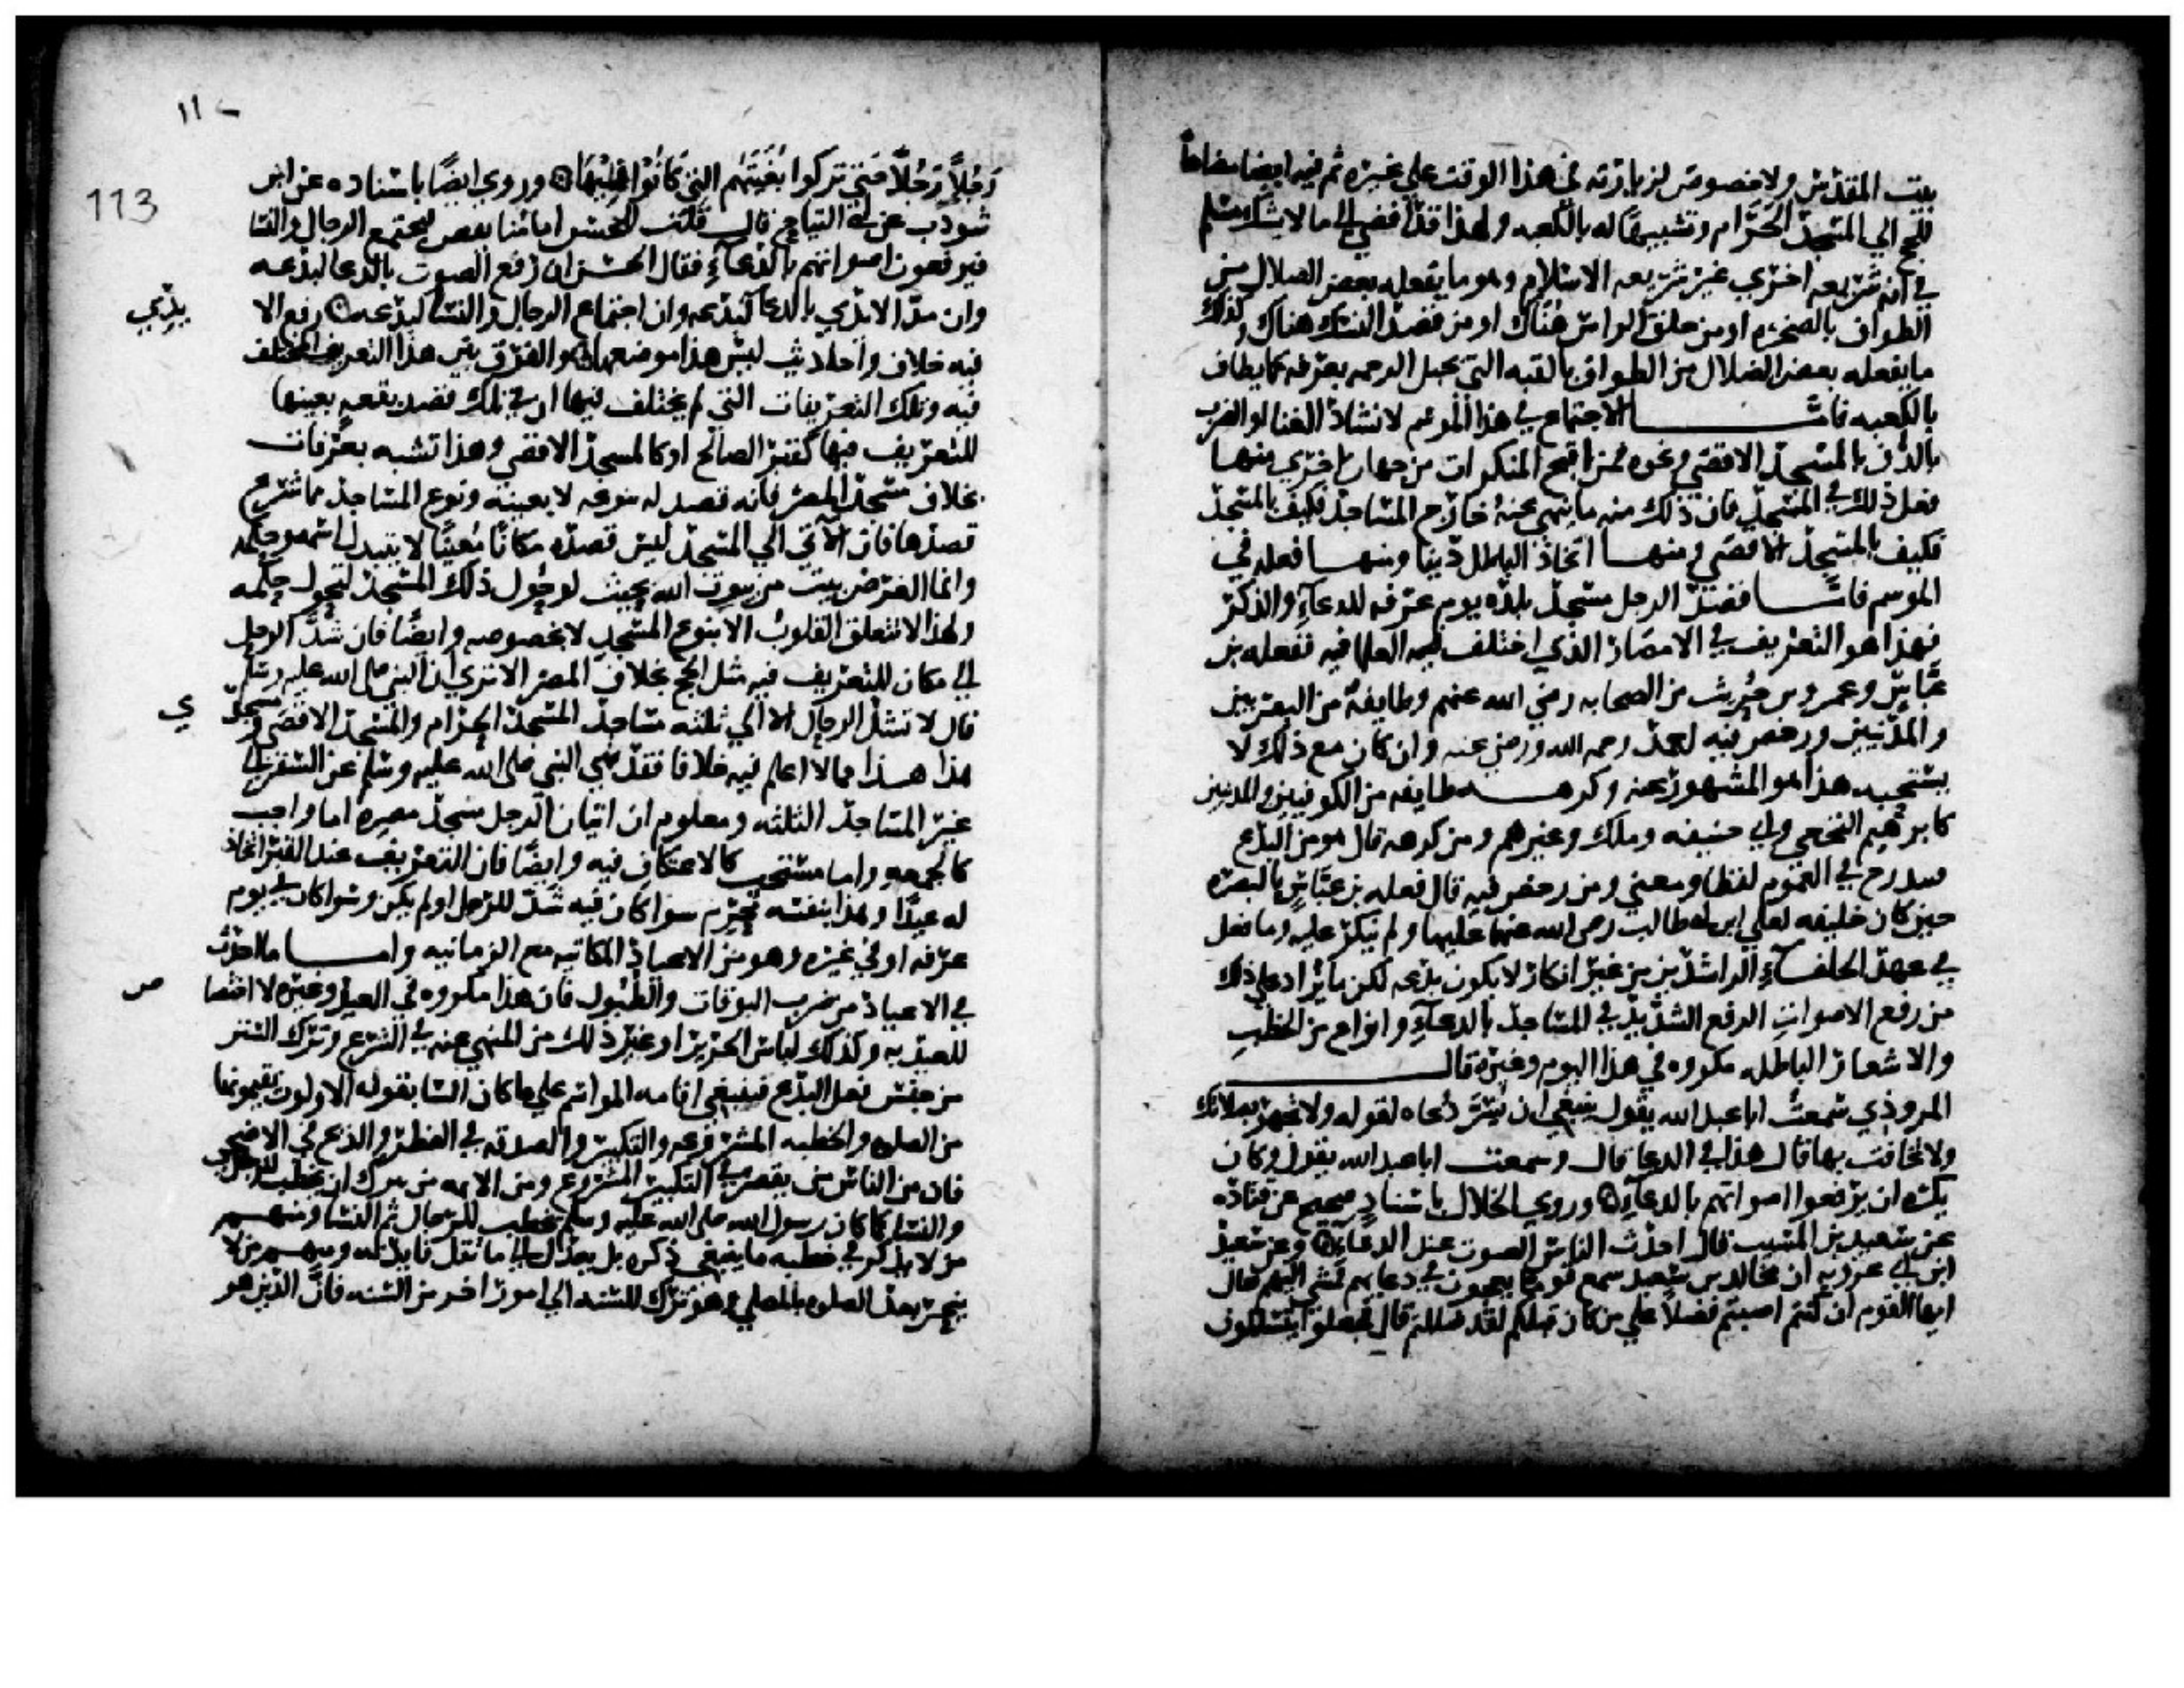 بيت المقدس ولا خصوص لزيارته في هذا الوقت على غيره ثم فيه ايضا مضاهاة
للحج الي المسجد الحرام وتشبيها له بالكعبه ولهذا قد افضي الي ما لا يشك مسلم
في انه شريعه اخري غير شريعه الاسلام وهو ما يفعله بعض الضلال من
الطواف بالصخره او من حلق الراس هناك او من قصد النسك هناك وكذلك
ما يفعله بعض الضلال من الطواف بالقبه التي بجبل الرحمه بعرفه كما يطاف
بالكعبه فامّا الاجتماع في هذا الموسم لانشاد الغنا او الضرب
بالدف بالمسجد الاقصي ونحوه فمن اقبح المنكرات من جهات اخري منها
فعل ذلك في المسجد فان ذلك منه ما نهي عنه خارج المساجد فكيف بالمسجد
فكيف بالمسجد الاقصي ومنها اتخاذ الباطل دينا ومنها فعله في
الموسم فامّا قصد الرجل مسجد بلده يوم عرفه للدعاء والذكر
فهذا هو التعريف في الامصار الذي اختلف فيه العلما فيه ففعله بن
عبّاس وعمرو بن حُريث من الصحابه رضي الله عنهم وطايفة من البصريين
والمدنيين ورخص فيه احمد رحمه الله ورضي عنه وان كان مع ذلك لا
يستحبه هذا هو المشهور عنه وكرهه طايفه من الكوفيين والمدنيين
كابرهيم النخعي وابي حنيفه وملك وغيرهم ومن كرهه قال هو من البدع
فيندرج في العموم لفظا ومعني ومن رخص فيه قال فعله بن عبّاس بالبصره
حين كان خليفه لعلي ابن ابي طالب رضي الله عنهما عليها ولم ينكر عليه وما فعل
في عهد الخلفاء الراشدين من غير انكار لا يكون بدعه لكن ما يزاد علي ذلك
من رفع الاصوات الرفع الشديد في المساجد بالدعاء وانواع من الخطب
والاشعار الباطله مكروه في هذا اليوم وغيره قال
المروذي سمعتُ ابا عبد الله يقول ينبغي ان يسر دُعاه لقوله ولا تجهر بصلاتك
ولا تخافت بها قال هذا في الدعا قال وسمعت ابا عبد الله يقول وكان
يكره ان يرفعوا اصواتهم بالدعاء وروي الخلال باسناد صحيح عن قتاده
عن سعيد بن المسيب قال احدث الناس الصوت عند الدعاء وعن سعيد
ابن ابي عروبه ان مجالد بن سعيد سمع قوما يعجون في دعايهم فمشي اليهم فقال
ايها القوم ان كنتم اصبتم فضلاً علي من كان قبلكم لقد ضللتم قال فجعلوا يتسللون
١١
113
رَجُلاً رَجُلاً حَتي تركوا بُغيتَهُم التي كانُوا فيها وروي ايضًا باسناده عن ابن
شوذب عن ابي التياح قال قلت للحسن امامُنا يقص فيجتمع الرجال والنسا
فيرفعون اصواتهم بالدُعآءِ فقال الحسن ان رفع الصوت بالدعا لبدعه
وان مدّ الايدي بالدعا لبدعه وان اجتماع الرجال والنسا لبدعه رفع الا
يدي
فيه خلاف واحاديث ليس هذا موضعها والفرق بين هذا التعريف المختلف
فيه وتلك التعريفات التي لم يختلف فيها ان في تلك قصد بقعه بعينها
للتعريف فيها كقبر الصالح او كالمسجد الاقصي وهذا تشبه بعرفات
بخلاف مسجد المصر فانه قصد له بنوعه لا بعينه ونوع المساجد مما شُرع
قصدها فان الآتي الي المسجد ليس قصده مكانًا مُعينًا لا يتبدل اسمه وحكمه
وانما الغرض بيت من بيوت الله بحيث لو حُول ذلك المسجد لتحول حكمه
ولهذا لا تتعلق القلوبُ الا بنوع المسجد لا بخصوصه وايضًا فان شدَّ الرحل
الي مكان للتعريف فيه مثل الحج بخلاف المصر الا تري ان النبي صلي الله عليه وسلم
قال لا تشد الرحال الا الي ثلثه مساجد المسجد الحرام والمسجد الاقصي ومسجد
ي
هذا هذا مما لا اعلم فيه خلافا فقد نهي النبي صلي الله عليه وسلم عن السفر الي
غير المساجد الثلثه ومعلوم ان اتيان الرجل مسجد مصره اما واجب
كالجمعه واما مستحب كالاعتكاف فيه وايضًا فان التعريف عند القبر اتخاذ
له عيدًا وهذا بنفسه محرم سوا كان فيه شدّ للرحل او لم يكن وسوا كان في يوم
عرفه او في غيره وهو من الاعياد المكانيه مع الزمانيه وامـا ما احدث
في الاعياد من ضرب البوقات والطبُول فان هذا مكروه في العيد وغيره لا اختصا
ص
للعيد به وكذلك لباس الحرير او غير ذلك من المنهي عنه في الشرع وترك السنن
من جنس فعل البدع فينبغي اقامه المواسم علي ما كان السابقون الاولون يقيمونها
من الصلوه والخطبه المشروعه والتكبير والصدقه في الفطر والذبح في الاضحي
فان من الناس من يقصر في التكبير المشروع ومن الايمه من يترك ان يخطب للرجال
والنسا كما كان رسول الله صلي الله عليه وسلم يخطب للرجال ثم النسا ومنهم
من لا يذكر في خطبه ما ينبغي ذكره بل يعدل الي ما تقل فايدته ومنهم من لا
ينحر بعد الصلوه بالمصلي وهو ترك للسنه الي امور اخر من السنه فانّ الدين هو